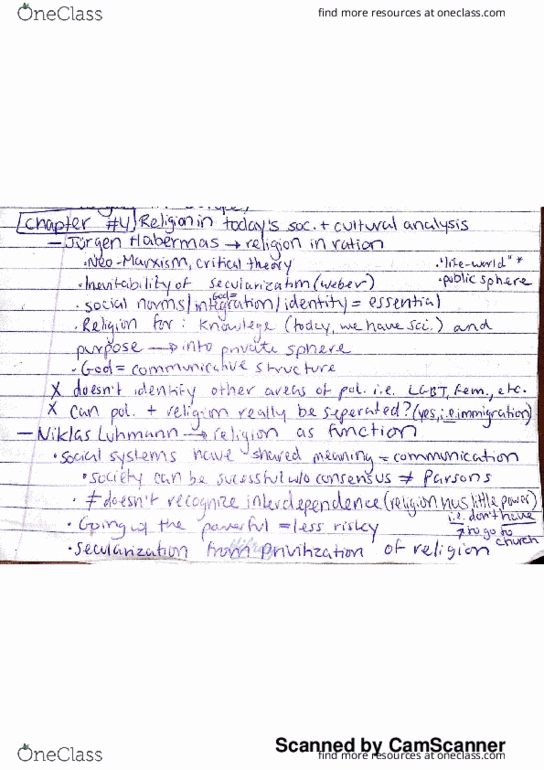 OneClass
find more resources at oneclass.com
Chapter #4 Religion in today's soc. + cultural analysis
— Jürgen Habermas → religion in ration
• Neo-Marxism, critical theory
• "life-world" *
• Inevitability of secularization (weber)
• public sphere
God=
• social norms/integration/identity = essential
• Religion for: knowlege (today, we have sci.) and
purpose → into private sphere
• God = communicative structure
X doesn't identify other areas of pol. i.e. LGBT, fem., etc.
X can pol. + religion really be seperated? (yes, i.e. immigration)
— Niklas Luhmann → religion as function
• social systems have shared meaning = communication
• society can be sucessful w/o consensus ≠ Parsons
• ≠ doesn't recognize interdependence (religion has little power)
i.e. don't have
• Going w/ the powerful = less risky
to go to
church
• secularization from privitization of religion
Scanned by CamScanner
OneClass
find more resources at oneclass.com